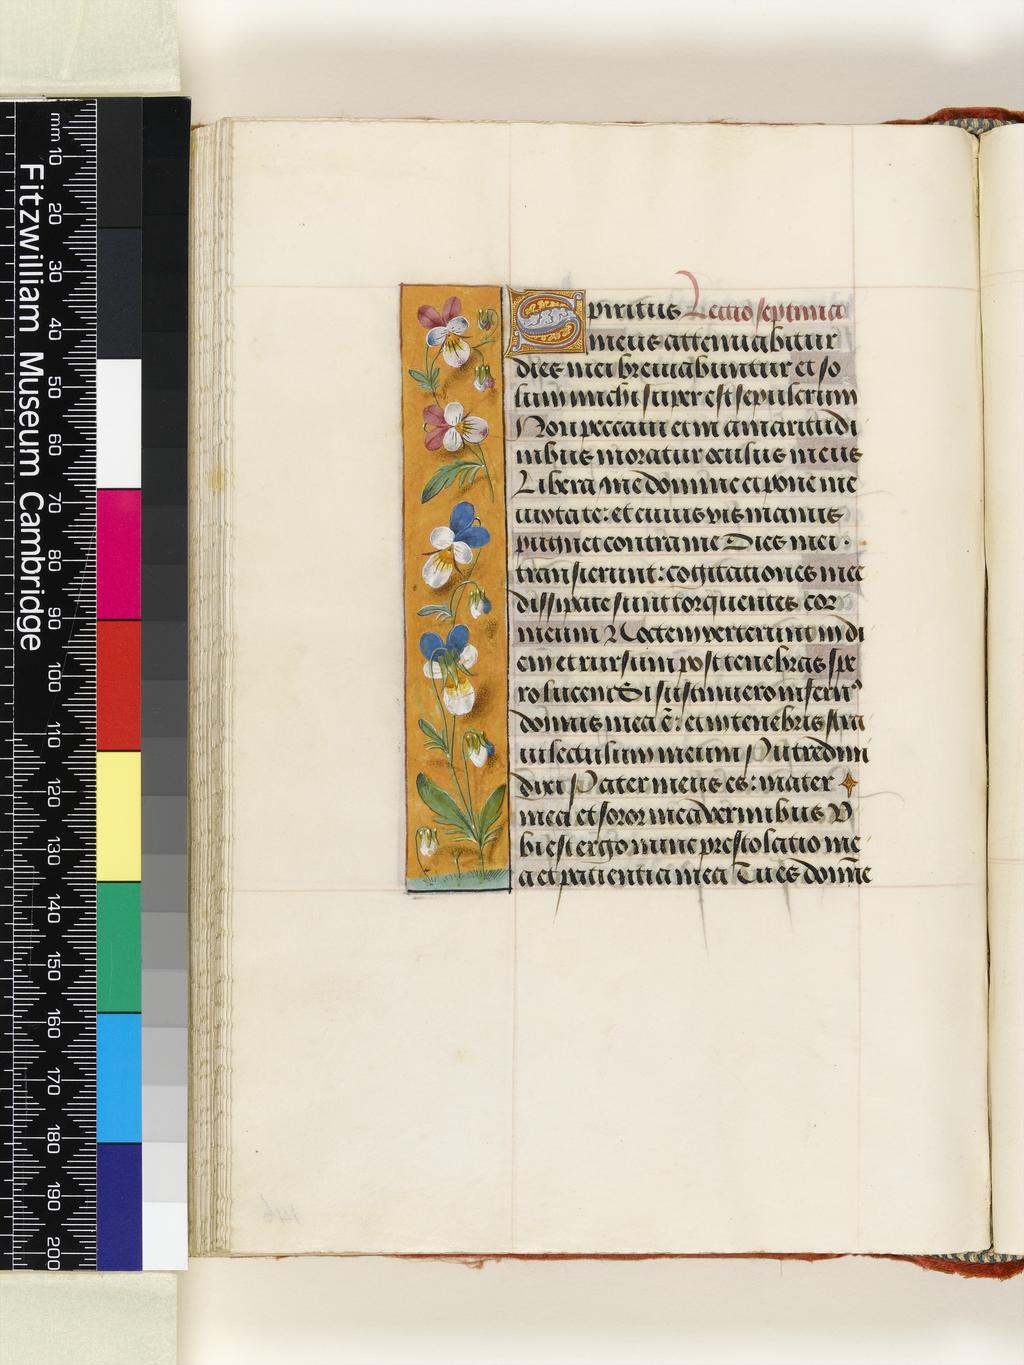 Spiritus Lectio septima
meus attenuabitur
dies mei breuiabuntur et so
lum michi superest sepulcrum
Non peccaui et in amaritudi
nibus moratur oculus meus
Libera me domine et pone me
iuxta te: et cuius vis manus
pugnet contra me Dies mei
transierunt: cogitationes mee
dissipate sunt torquentes cor
meum Noctem verterunt in di
em et rursum post tenebras spe
ro lucem Si sustinuero infern9
domus mea ē: et in tenebris stra
ui lectulum meum Putredini
dixi Pater meus es: mater
mea et soror mea vermibus V
bi est ergo nunc prestolatio me
a et patientia mea Tu es domīe
Fitzwilliam Museum Cambridge
mm 10 20 30 40 50 60 70 80 90 100 110 120 130 140 150 160 170 180 190 200
146